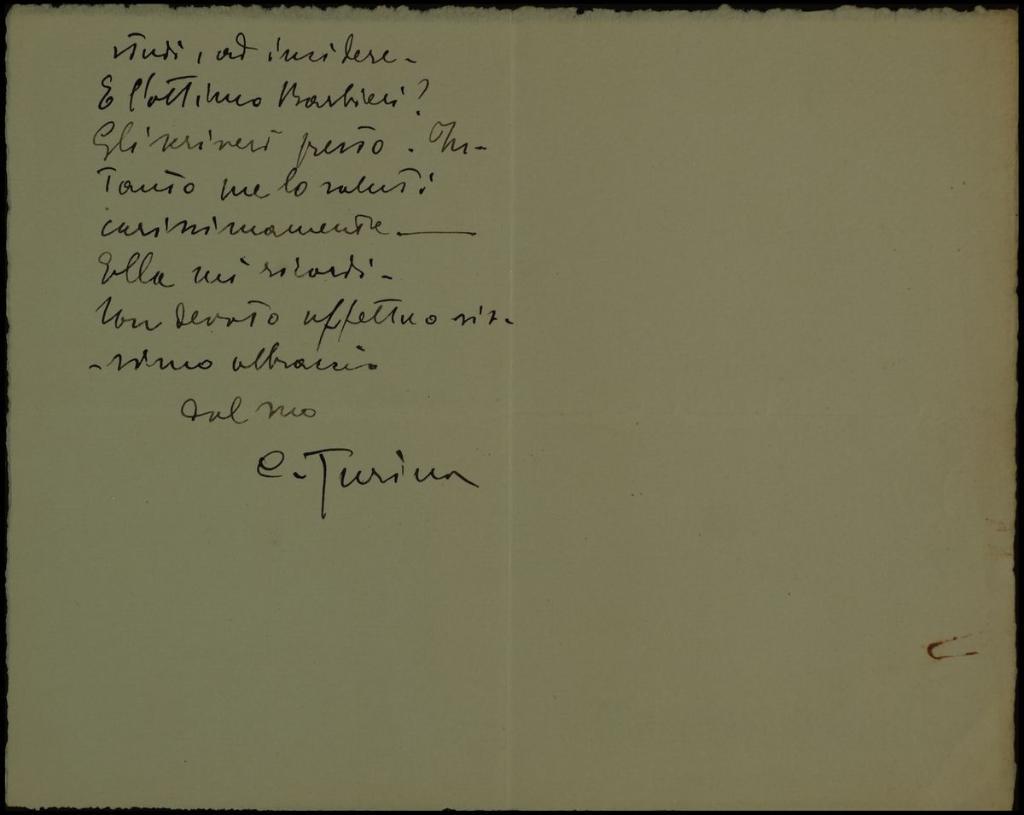 studi, ad incidere -
E l'ottimo Barbieri?
Gli scriverò presto. In-
tanto me lo saluti
carissimamente. —
Ella mi ricordi -
Con devoto affettuosis-
-simo abbraccio
dal suo
C. Turina